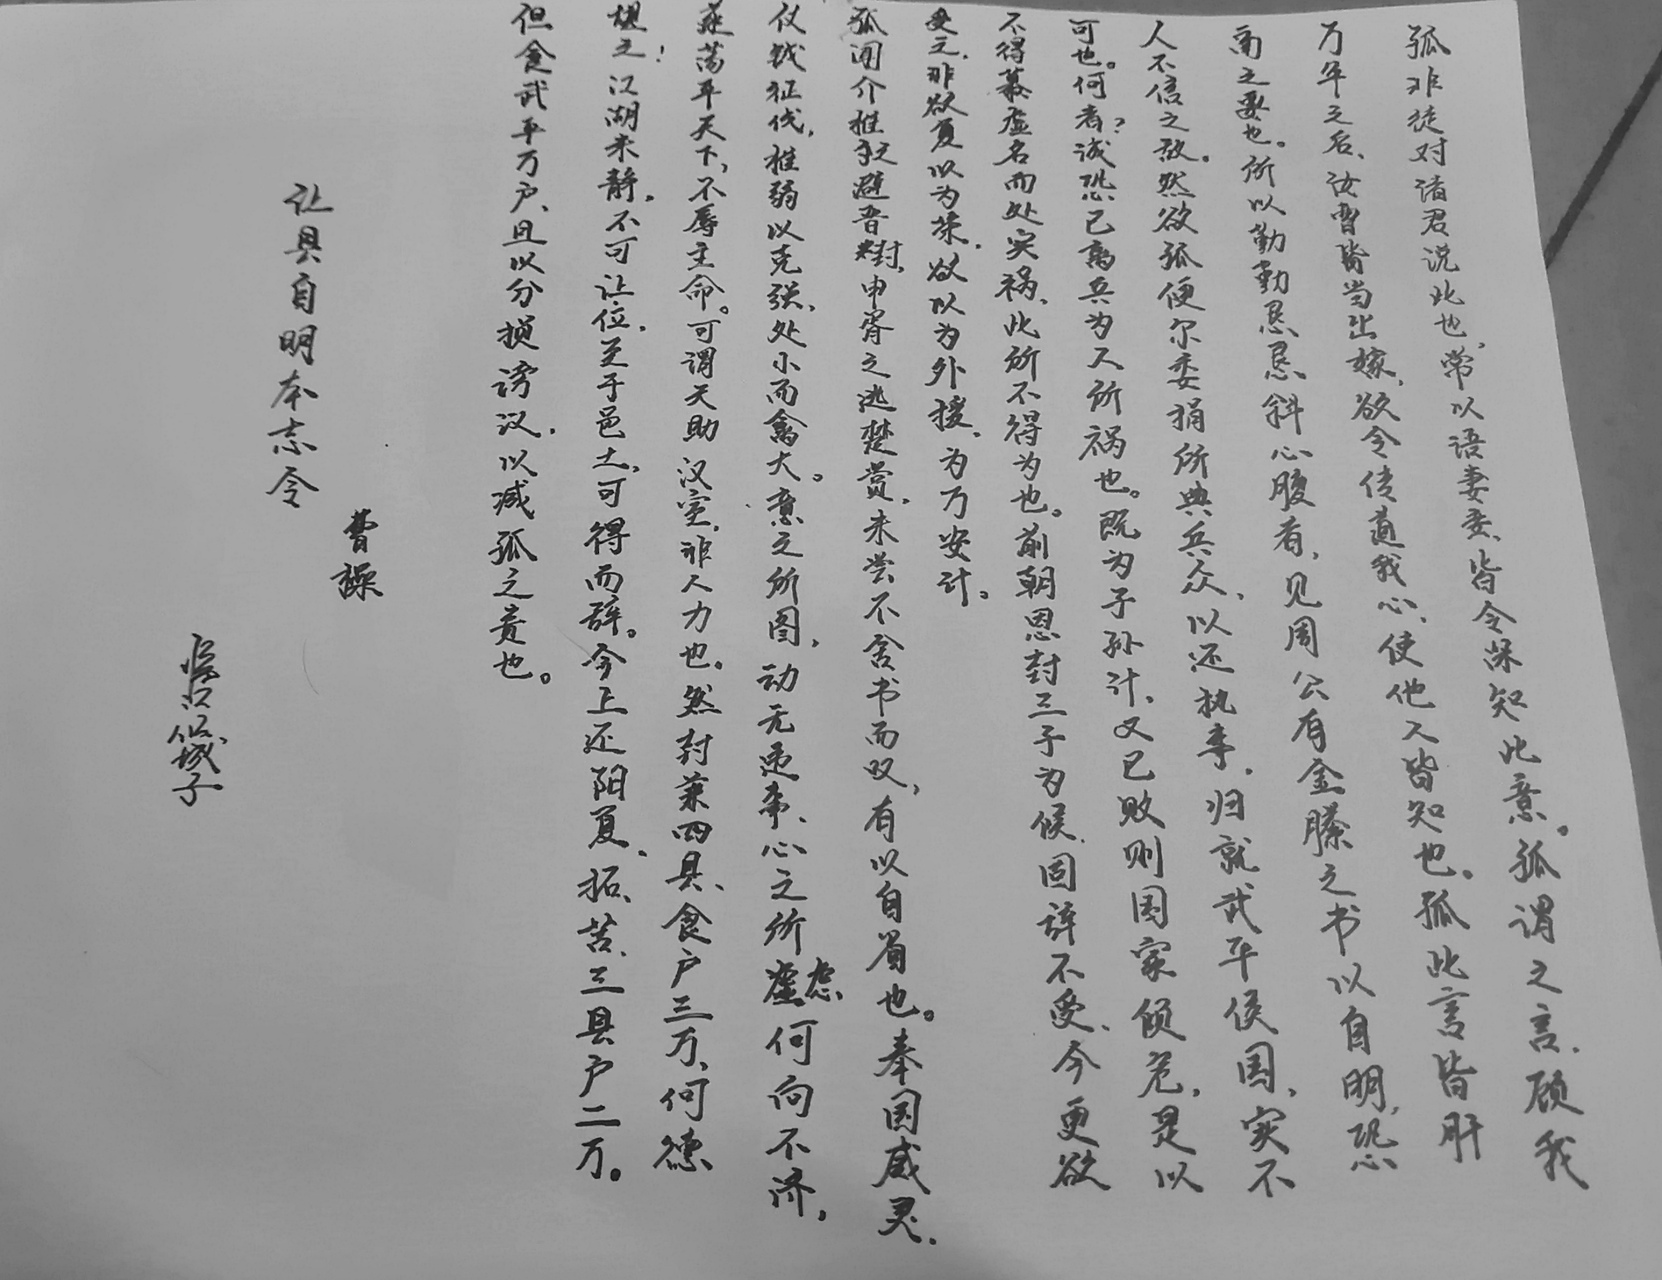 孤非徒对诸君说此也，常以语妻妾，皆令深知此意。孤谓之言，顾我
万年之后，汝曹皆当出嫁，欲令传道我心，使他人皆知也。孤此言皆肝
鬲之要也。所以勤勤恳恳斜心腹者，见周公有金縢之书以自明，恐
人不信之故。然欲孤便尔委捐所典兵众，以还执事，归就武平侯国，实不
可也。何者？诚恐已离兵为人所祸也。既为子孙计，又已败则国家倾危，是以
不得慕虚名而处实祸，此所不得为也。前朝恩封三子为侯，固辞不受，今更欲
受之，非欲复以为荣，欲以为外援，为万安计。
孤闻介推之避晋封，申胥之逃楚赏，未尝不舍书而叹，有以自省也。奉国威灵，
仗钺征伐，推弱以克强，处小而禽大。意之所图，动无违事，心之所虑何向不济，
遂荡平天下，不辱主命。可谓天助汉室，非人力也。然封兼四县，食户三万，何德
堪之！江湖未静，不可让位，至于邑土，可得而辞。今上还阳夏、拓、苦、三县户二万。
但食武平万户，且以分损谤议，以减孤之责也。
让县自明本志令
曹操
子